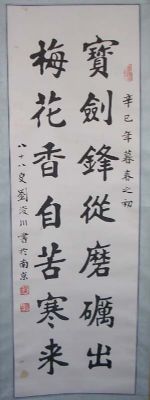 辛巳年暮春之初
寶劍鋒從磨礪出
梅花香自苦寒来
八十八叟劉浚川書於南京